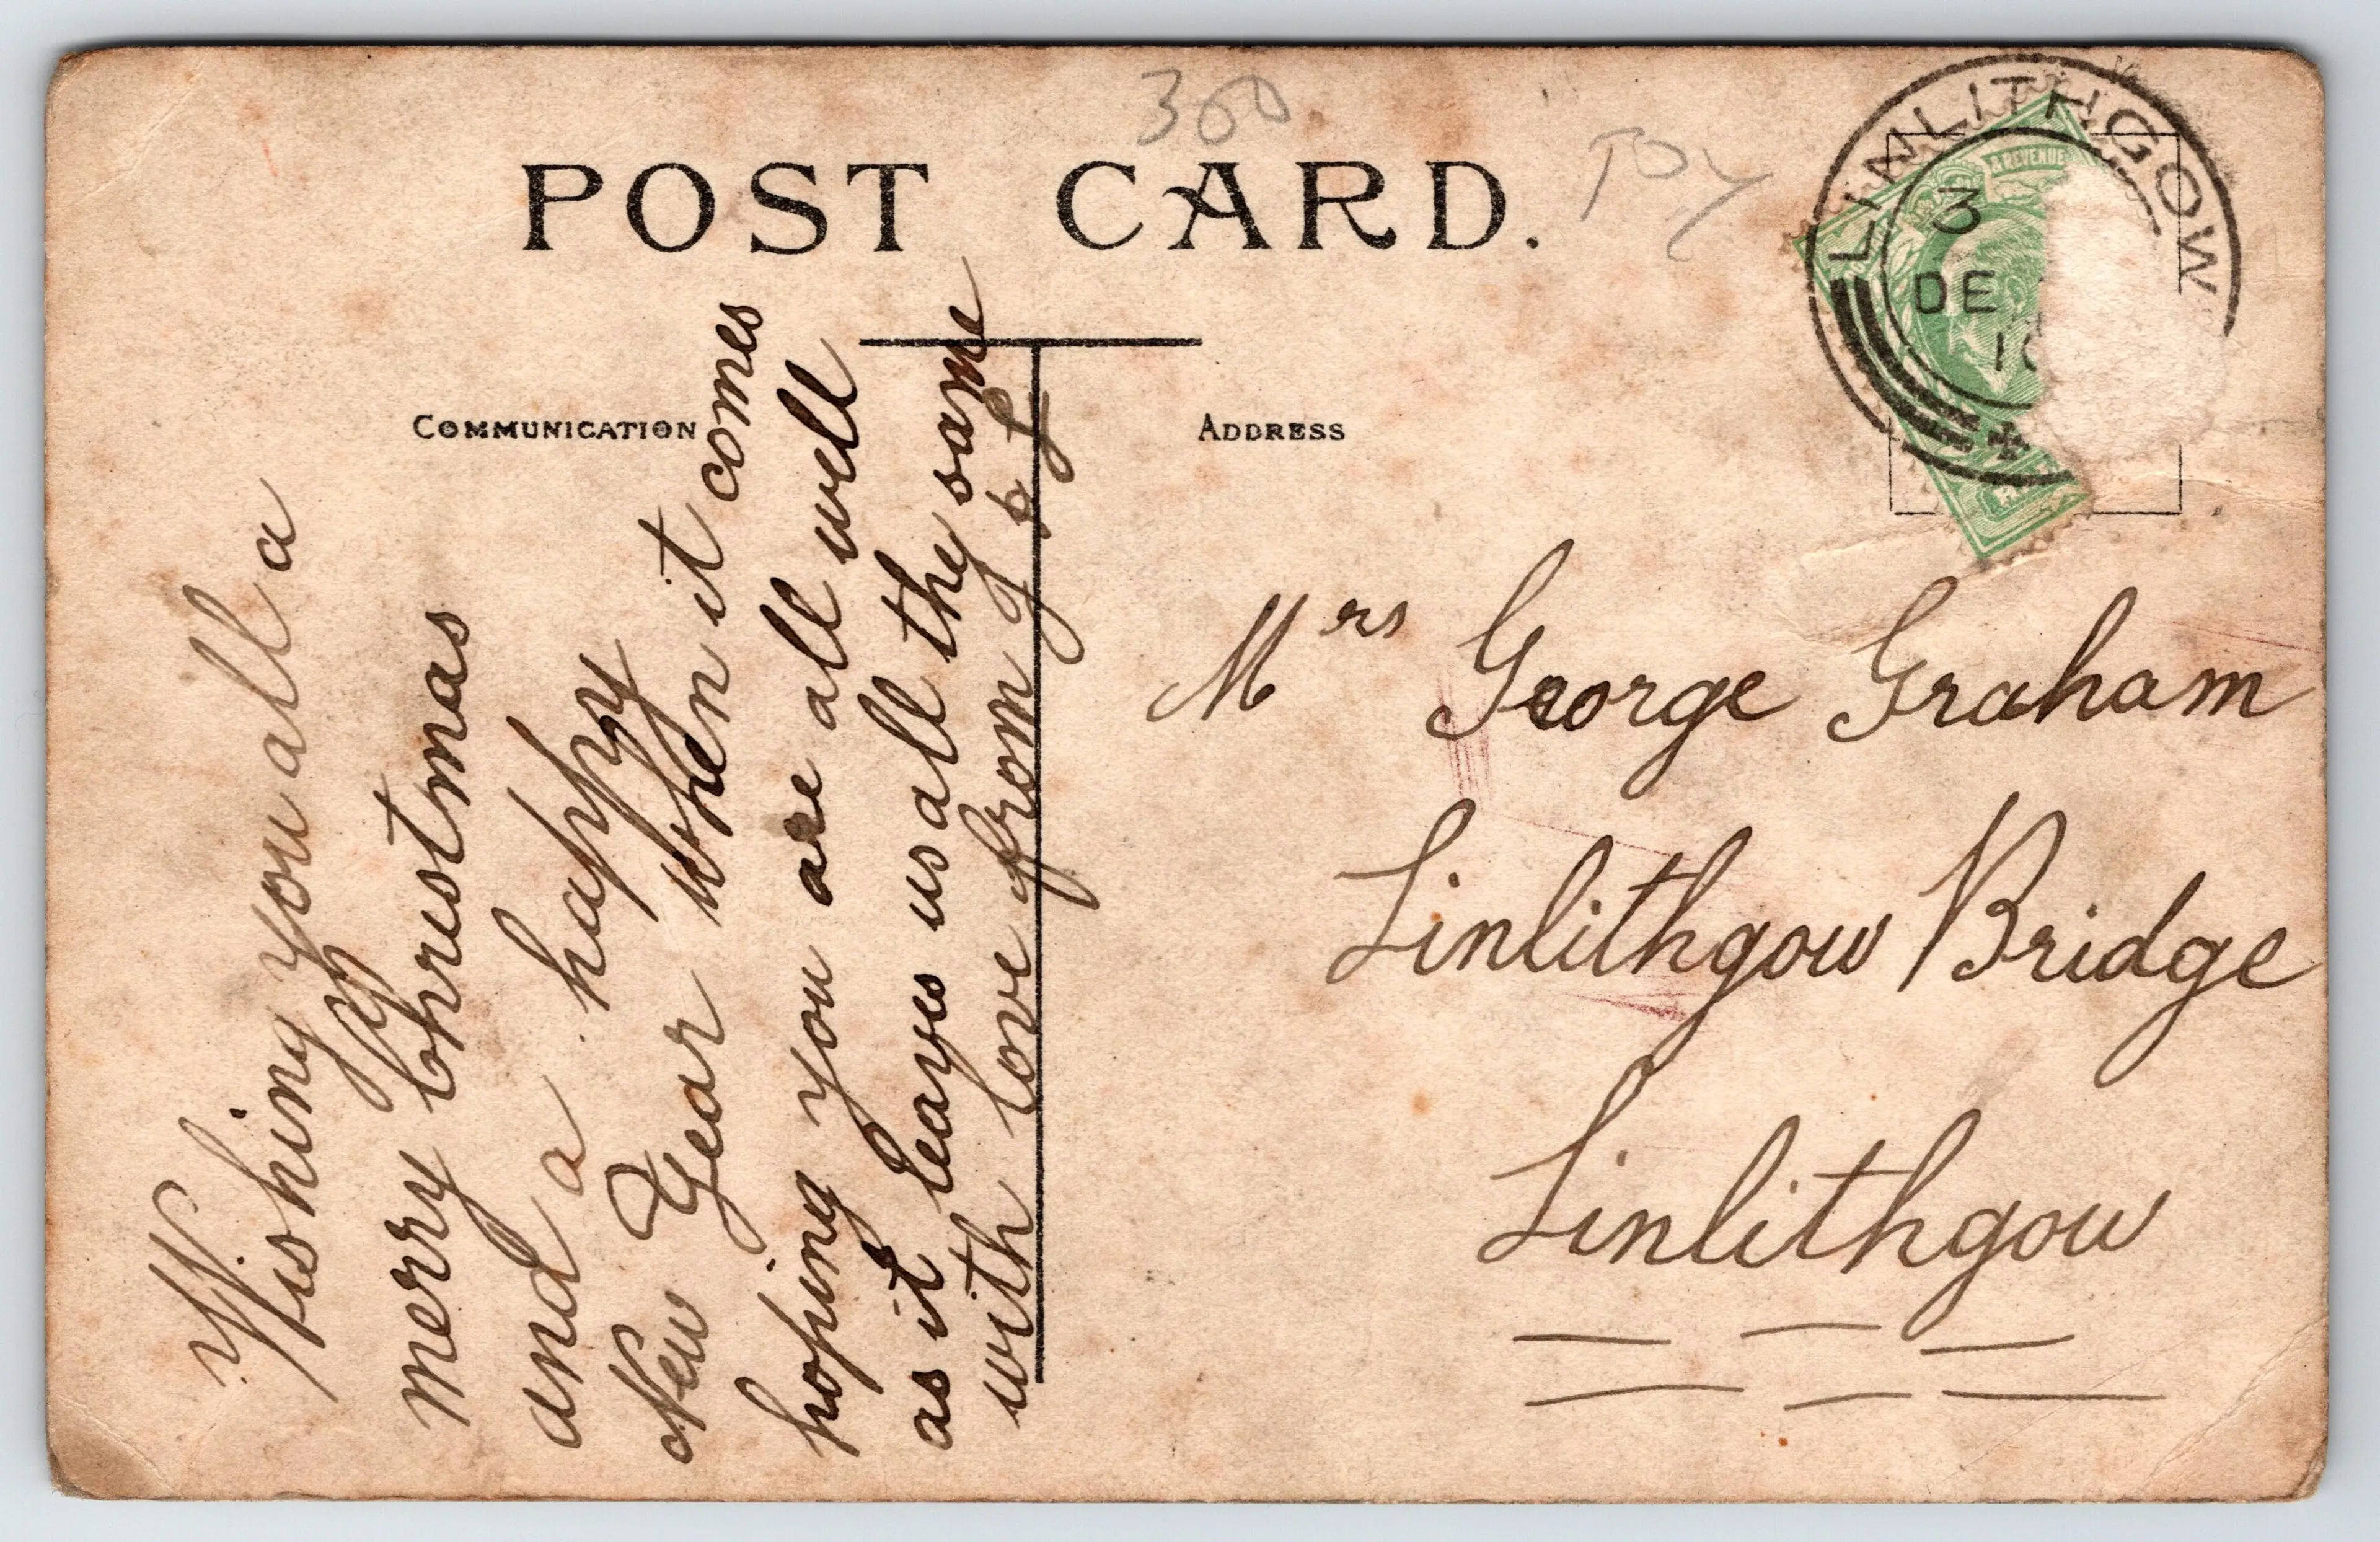 300
Toy
POST CARD.
COMMUNICATION
ADDRESS
LINLITHGOW
3
DE
A REVENUE
Wishing you all a
merry Christmas
and a happy
New Year when it comes
hoping you are all well
as it leayes us all they same
with love from
Mrs George Graham
Linlithgow Bridge
Linlithgow